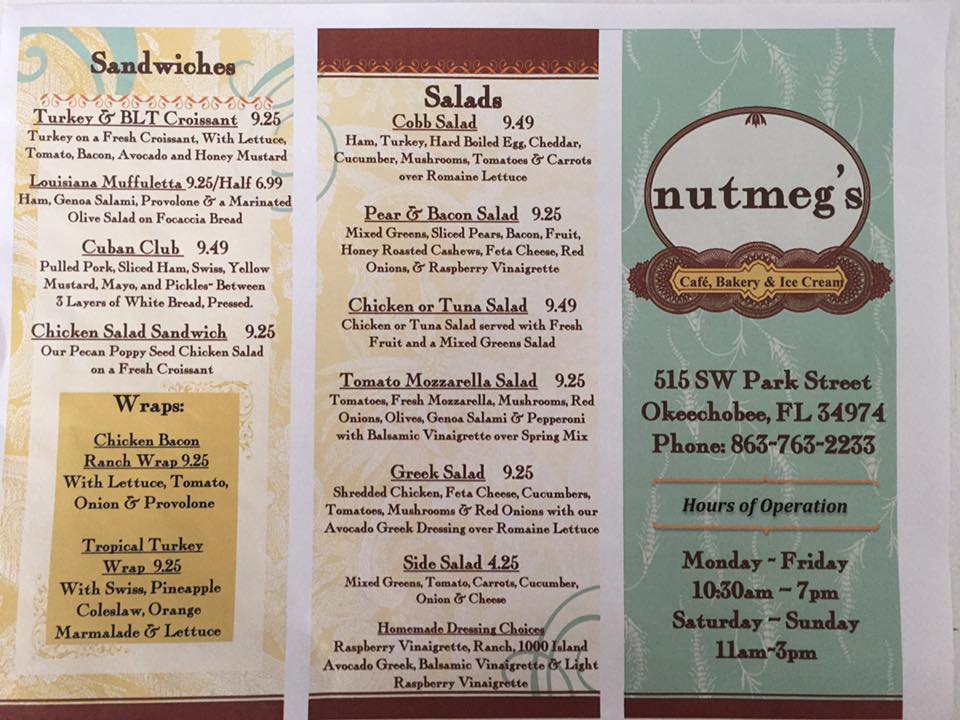 Sandwiches
Turkey & BLT Croissant 9.25
Turkey on a Fresh Croissant, With Lettuce,
Tomato, Bacon, Avocado and Honey Mustard
Louisiana Muffuletta 9.25/Half 6.99
Ham, Genoa Salami, Provolone & a Marinated
Olive Salad on Focaccia Bread
Cuban Club 9.49
Pulled Pork, Sliced Ham, Swiss, Yellow
Mustard, Mayo, and Pickles- Between
3 Layers of White Bread, Pressed.
Chicken Salad Sandwich 9.25
Our Pecan Poppy Seed Chicken Salad
on a Fresh Croissant
Wraps:
Chicken Bacon
Ranch Wrap 9.25
With Lettuce, Tomato,
Onion & Provolone
Tropical Turkey
Wrap 9.25
With Swiss, Pineapple
Coleslaw, Orange
Marmalade & Lettuce
Salads
Cobb Salad 9.49
Ham, Turkey, Hard Boiled Egg, Cheddar,
Cucumber, Mushrooms, Tomatoes & Carrots
over Romaine Lettuce
Pear & Bacon Salad 9.25
Mixed Greens, Sliced Pears, Bacon, Fruit,
Honey Roasted Cashews, Feta Cheese, Red
Onions, & Raspberry Vinaigrette
Chicken or Tuna Salad 9.49
Chicken or Tuna Salad served with Fresh
Fruit and a Mixed Greens Salad
Tomato Mozzarella Salad 9.25
Tomatoes, Fresh Mozzarella, Mushrooms, Red
Onions, Olives, Genoa Salami & Pepperoni
with Balsamic Vinaigrette over Spring Mix
Greek Salad 9.25
Shredded Chicken, Feta Cheese, Cucumbers,
Tomatoes, Mushrooms & Red Onions with our
Avocado Greek Dressing over Romaine Lettuce
Side Salad 4.25
Mixed Greens, Tomato, Carrots, Cucumber,
Onion & Cheese
Homemade Dressing Choices
Raspberry Vinaigrette, Ranch, 1000 Island
Avocado Greek, Balsamic Vinaigrette & Light
Raspberry Vinaigrette
nutmeg's
Café, Bakery & Ice Cream
515 SW Park Street
Okeechobee, FL 34974
Phone: 863-763-2233
Hours of Operation
Monday ~ Friday
10:30am ~ 7pm
Saturday ~ Sunday
11am~3pm